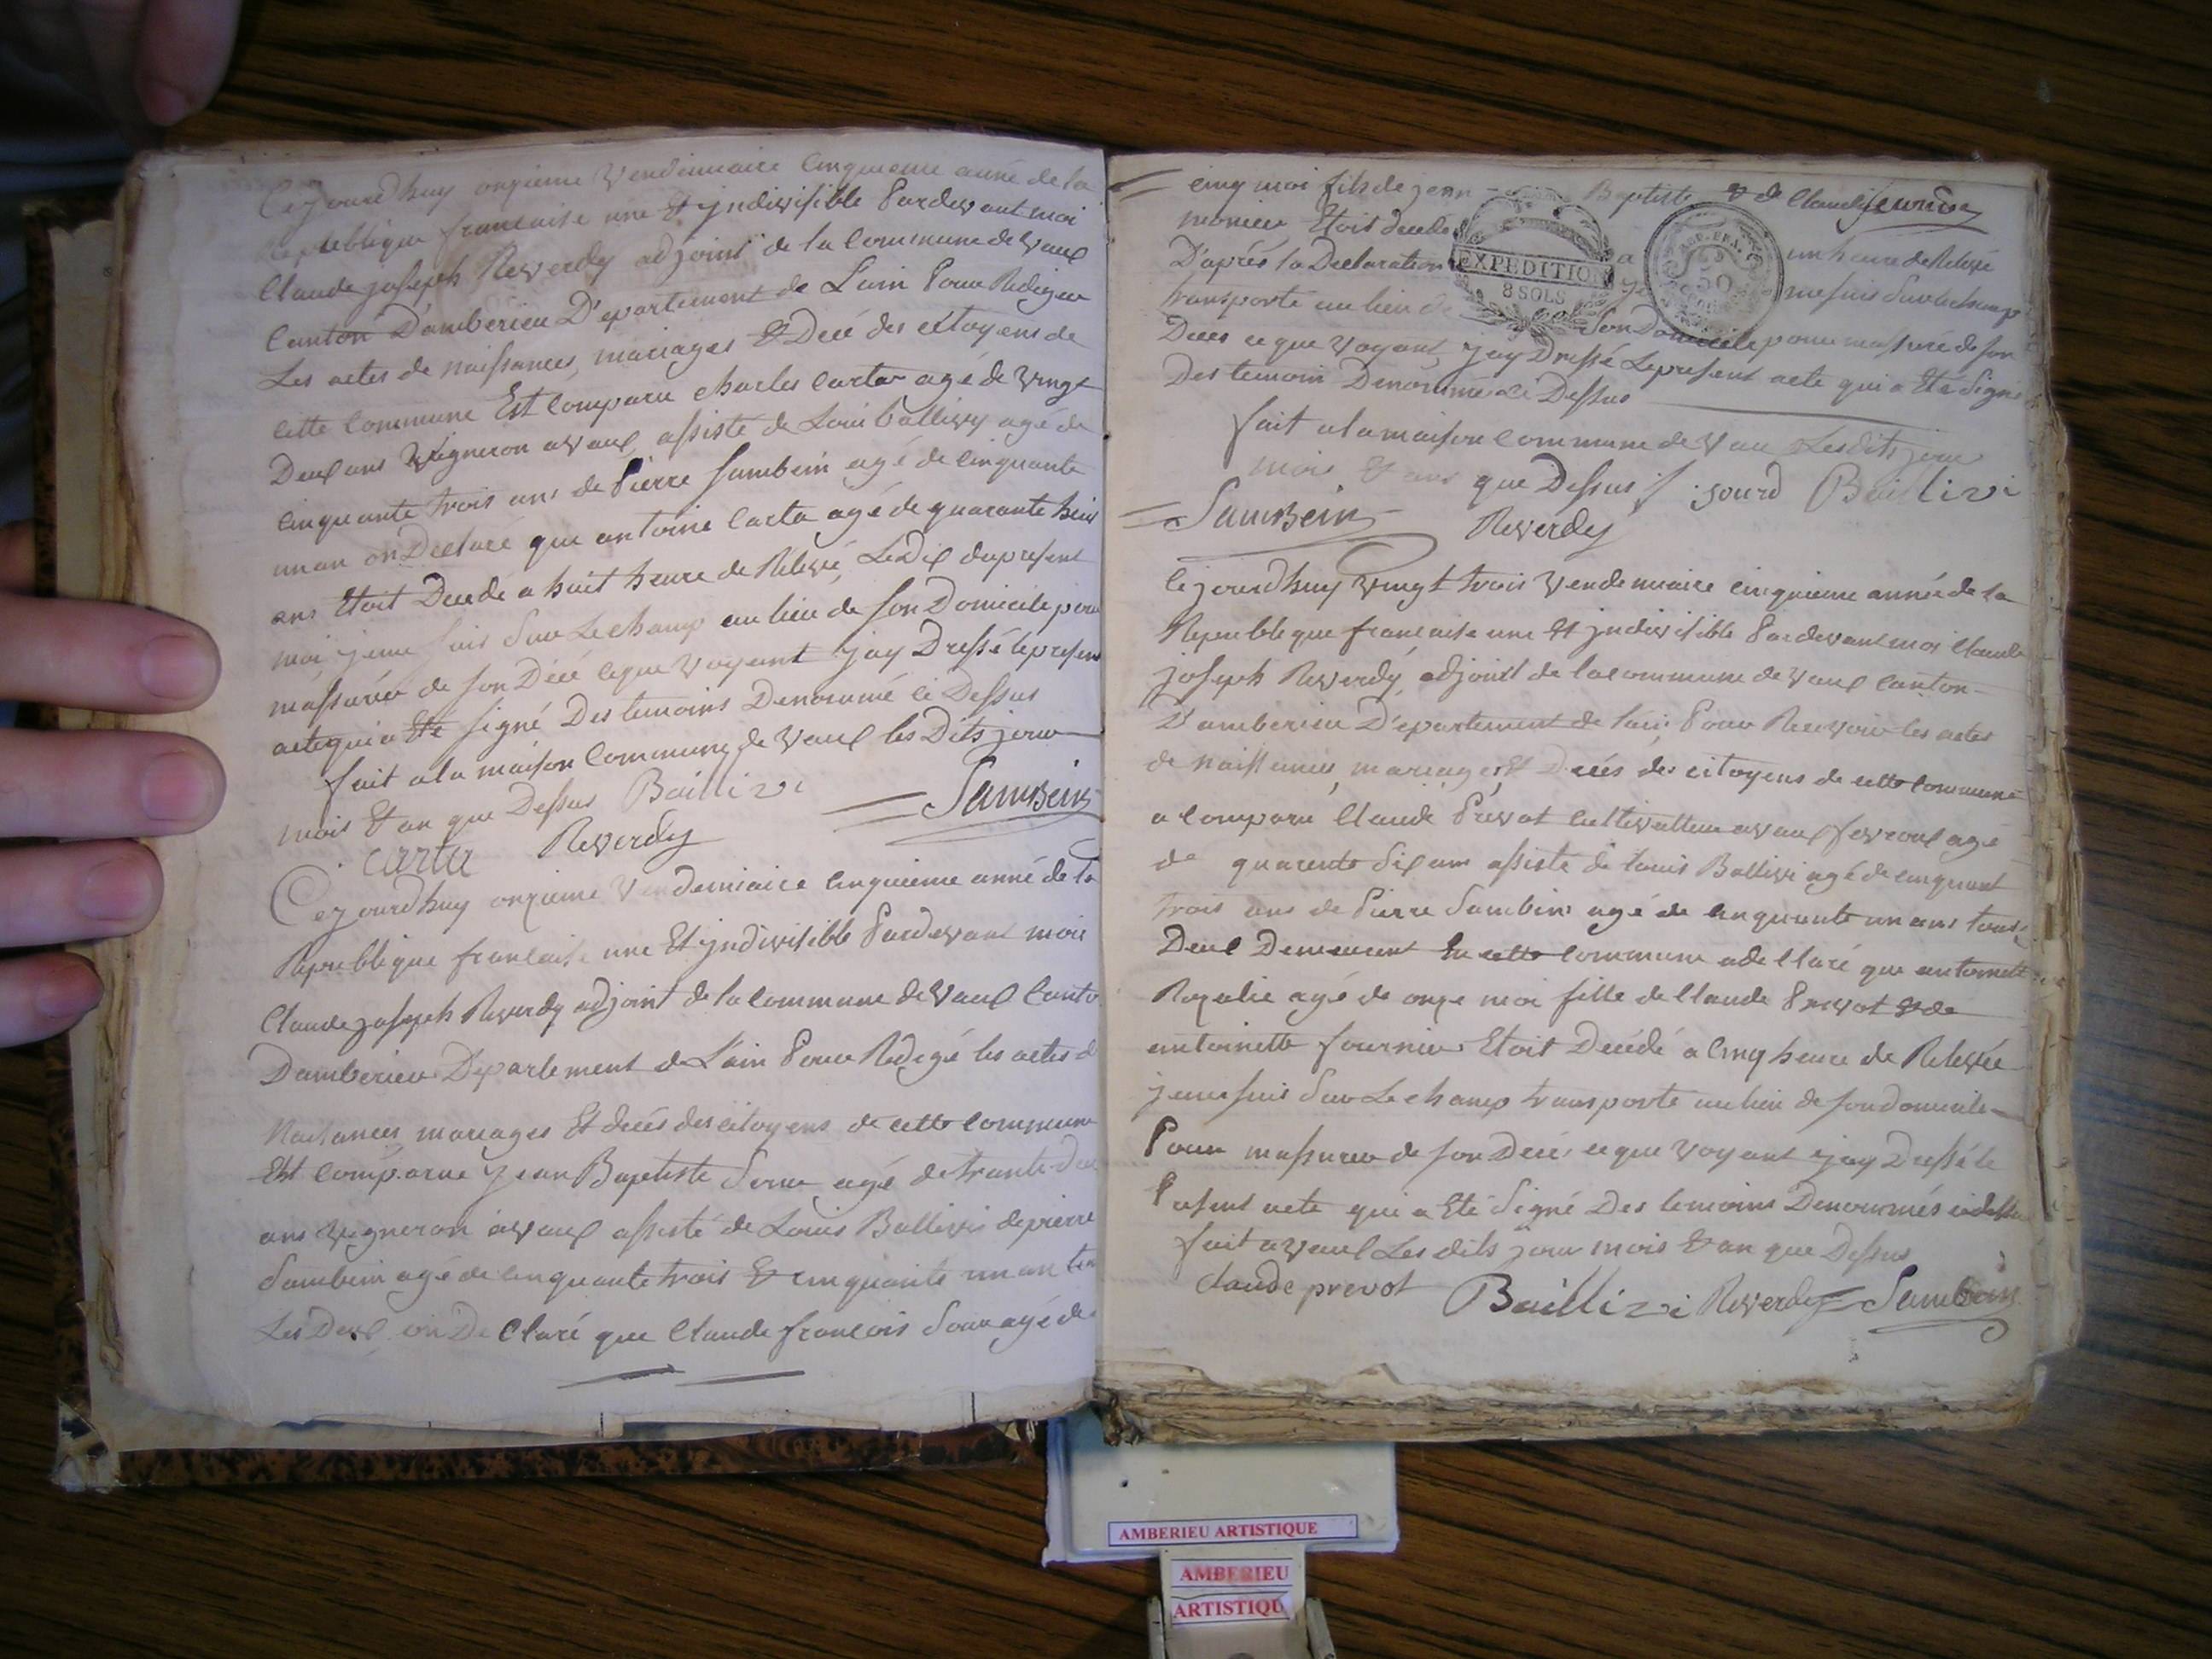 Cejourdhuy onzieme Vendemiaire Cinquieme anné de la
Republique francaise une Et jndivisible Pardevant moi
Claude joseph Reverdy adjoint de la Commune de Vaux
Canton D'amberieu D'epartement de L'ain Pour Rediger
Les actes de naissances, mariages & Décé des citoyens de
cette Commune Est Comparu charles Carta agé de vingt
Deux ans Vigneron a Vaux, assisté de Loui ballivy agé de
cinquante trois ans de Pierre Sambein agé de cinquante
un an on Declaré que antoine Carta agé de quarante huit
ans Etoit Decedé a huit heure de Relevé, Le Dix du present
moi jeme suis Sur Le champ au lieu de son Domicile pour
massurer de son Décé ceque voyant jay Dressé le present
acte qui a Eté signé Des temoins Denommé ci Dessus
fait a la maison Commune de Vaux les Dits jour
mois Et an que Dessus Baillivi Sambein
carta Reverdy
Cejourdhuy onzieme Vendemiaire Cinquieme anné de la
Republique francaise une Et jndivisible Pardevant moi
Claude joseph Reverdy adjoint de la Commune de Vaux Canto
Damberieu Departement de L'ain Pour Redigé les actes d
Naisances mariages Et decés des citoyens de cette Commune
Est Comparue Jean Baptiste agé de trante
ans vigneron a Vaux assisté de Louis Ballivi de pierre
Sambein agé de cinquante trois & cinquante un an
Les Deux on De Claré que Claude francois agé de
cinq moi fils de jean Baptiste & de Claudi
monier Etoit decedé a un heure de Relevé
D'aprés la Declaration je me suis Sur le champ
EXPEDITION
8 SOLS
REP. FRA.
50
transporte au lieu de Son Domicile pour massuré de son
Deces ce que voyant, jay Dressé Le present acte qui a Eté Signé
Des temoin Denommé ci Dessus
fait a la maison Commune de Vau Les dits jour
mois Et ans que Dessus jourd Baillivi
Sambein Reverdy
Cejourdhuy vingt trois Vendemiaire cinquieme année de la
Republique francaise une Et jndivisible Pardevant moi Claude
joseph Reverdy, adjoint de la Commune de Vaux Canton
D'amberieu D'epartement de lain Pour Recevoir les actes
de naissances, mariages, Et Decés des citoyens de cette Commune
a Comparu Claude Prevot Cultivatteur a Vaux fevroux agé
de quarente Six ans assiste de Louis Ballivi agé de cinquant
trois ans de Pierre Sambin agé de cinquante un ans tous
Deux Demeurant En cette Commune a declaré que antoinette
Rozalie agé de onze moi fille de Claude Prevot & de
antoinette fournier Etoit Décédé a Cinq heure de Relevée
jeme suis Sur Le champ transporte au lieu de son domicile
Pour massurer de son Decé, ce que voyant jay Dressé le
Present acte qui a Eté Signé Des temoins Denommés ci dessu
fait a Vaux Les dits jour mois & an que Dessus
claude prevot Baillivi Reverdy Sambein
AMBERIEU ARTISTIQUE
AMBERIEU
ARTISTIQU